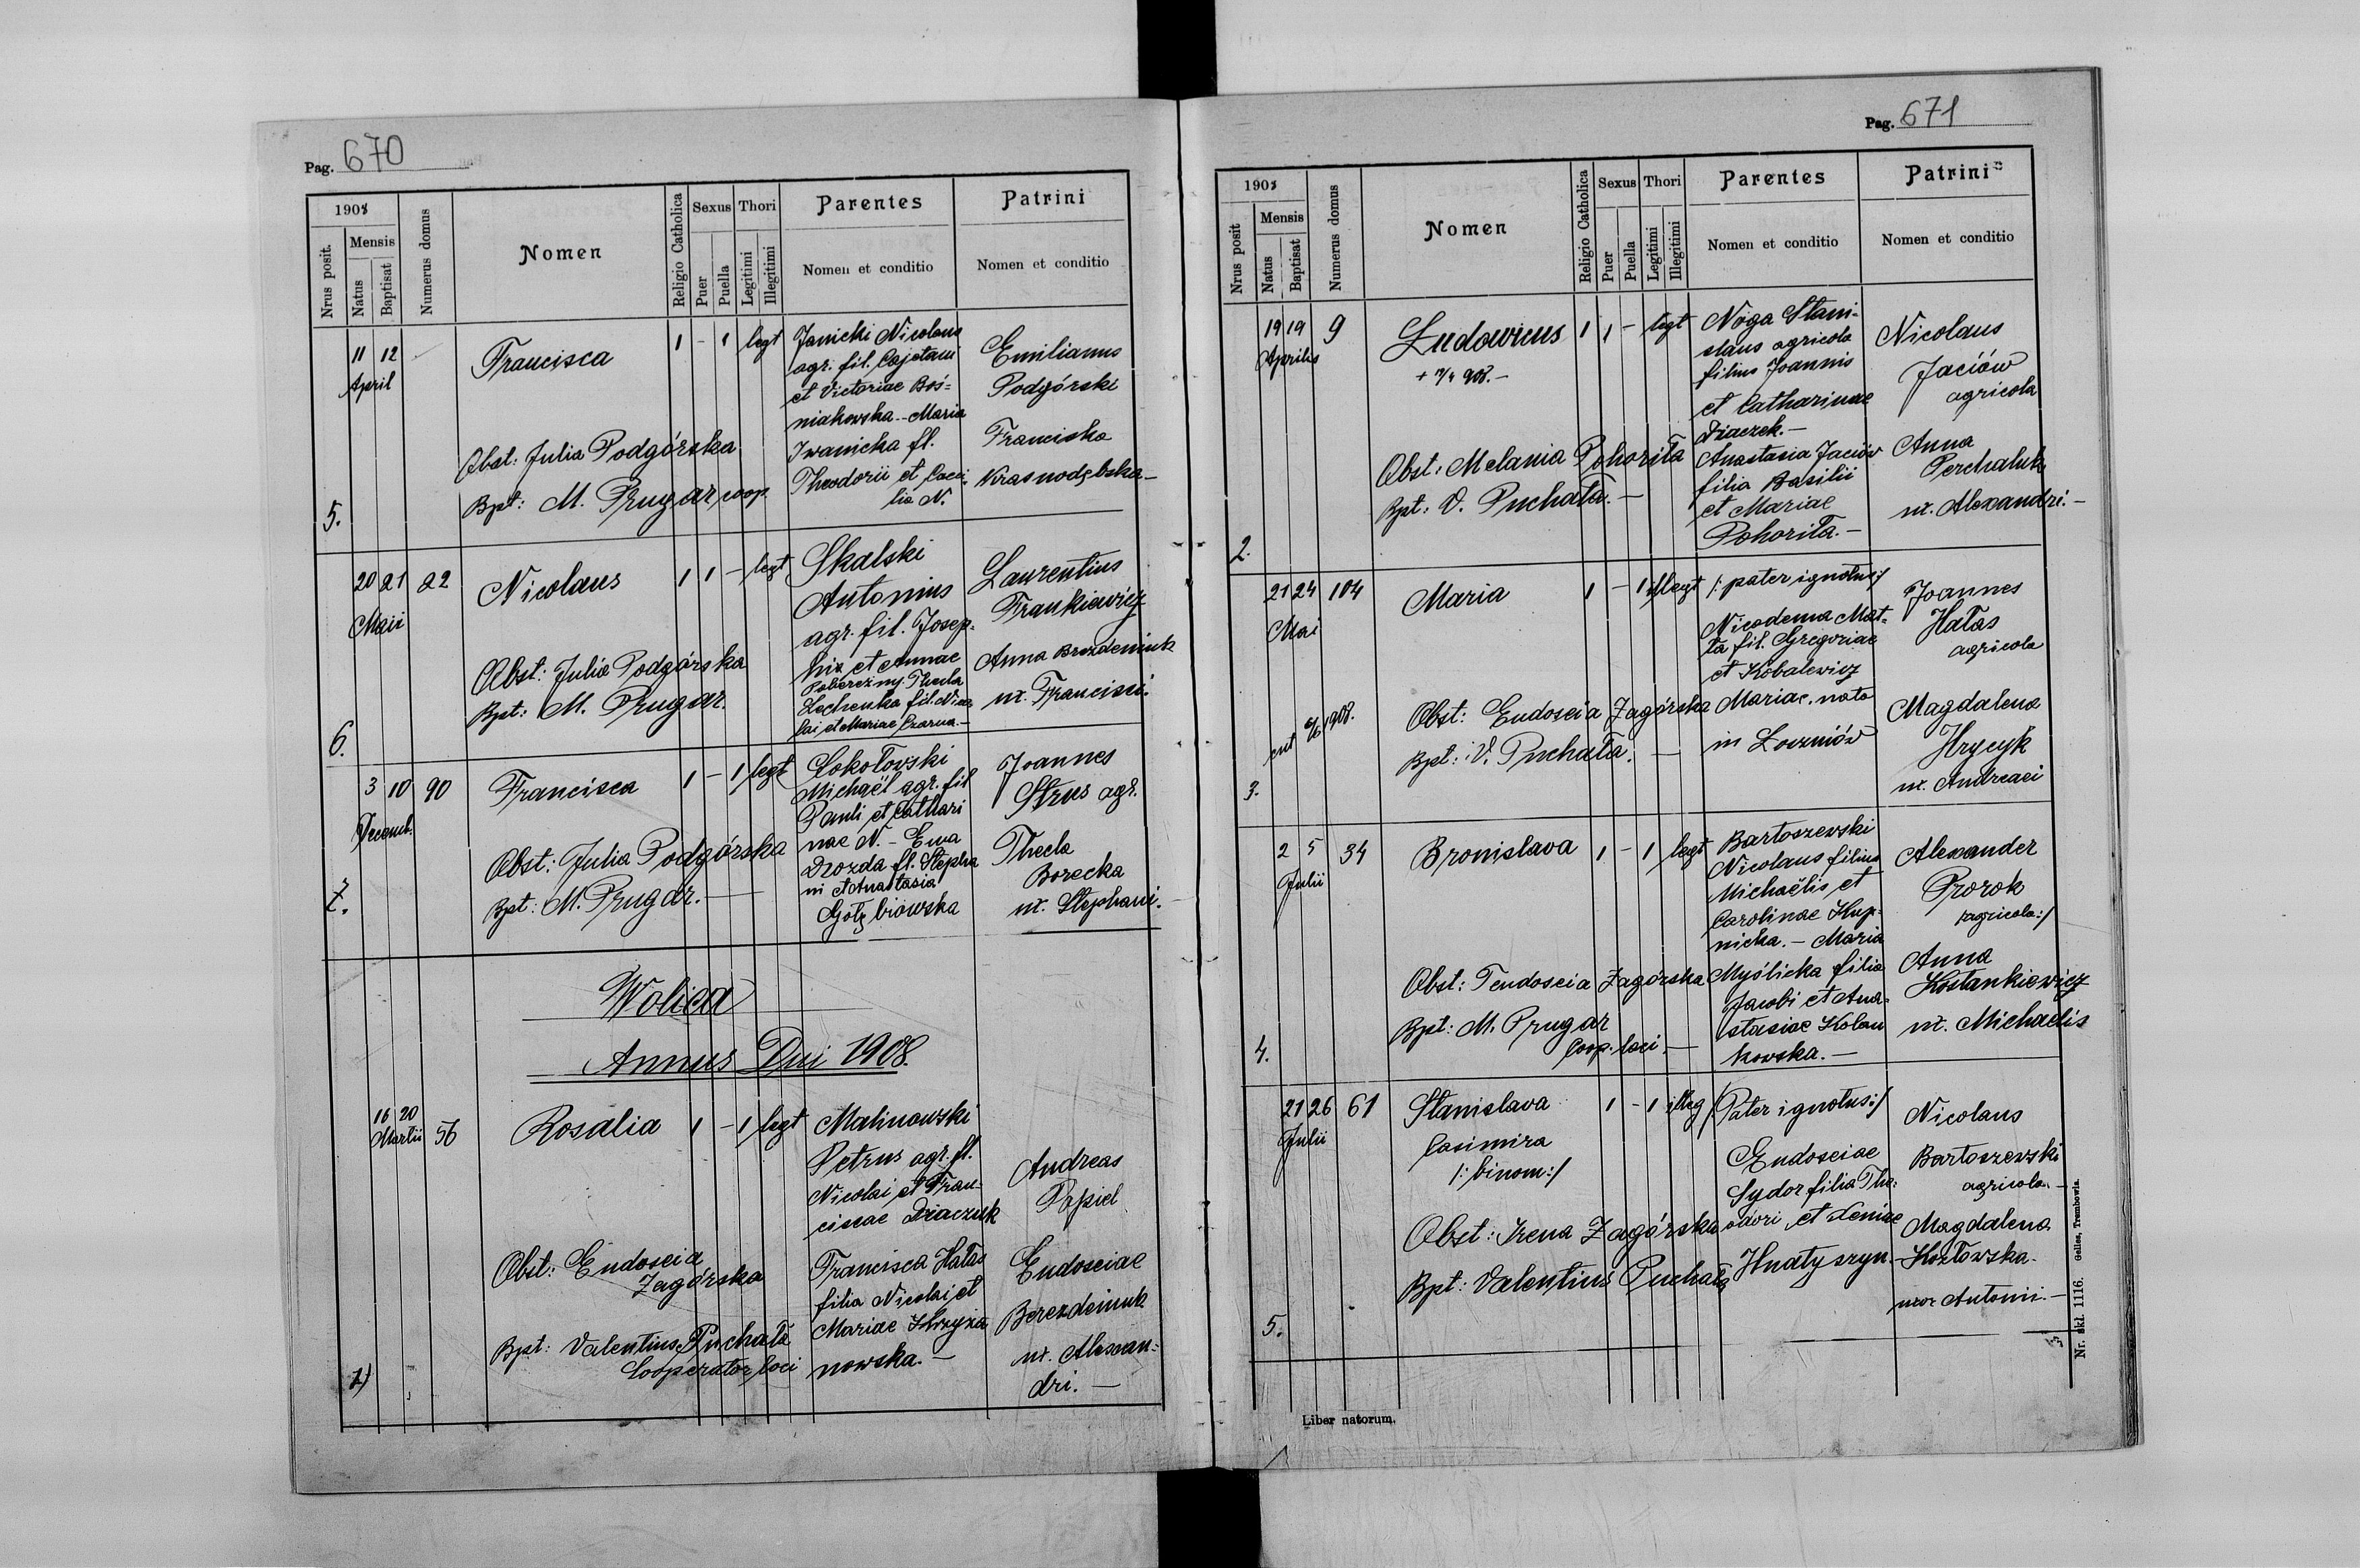 Pag. 670
1908
Nrus posit.
Mensis
Natus
Baptisat
Numerus domus
Nomen
Religio Catholica
Sexus
Puer
Puella
Thori
Legitimi
Illegitimi
Parentes
Nomen et conditio
Patrini
Nomen et conditio
5.
11 12
April
Francisca
1 - 1 legt
Obst: Julia Podgórska
Bpt: M. Prugar, coop.
Janicki Nicolaus
agr. fil. Cajetani
et Victoriae Boś=
niakowska - Maria
Iwanicka fl.
Theodorii et Caeci
lia N.
Emilianus
Podgórski
Franciska
Krasnodębska -
6.
20 21 22
Maii
Nicolaus
1 1 - legt
Obst: Julia Podgórska
Bpt: M. Prugar.
Skalski
Antonius
agr. fil. Josep-
his et Annae
Poberezny. Thecla
Lechenka fil. Nico
lai et Mariae Czarna. -
Laurentius
Frankiewicz
Anna Brezdeniuk
ux. Francisci.
7.
3 10 90
Decemb.
Francisca
1 - 1 legt
Obst: Julia Podgórska
Bpt: M. Prugar. -
Sokołovski
Michaël agr. fil
Pauli et Cathari
nae N. - Ewa
Drozda fl. Stepha
ni et Anastasia
Gołębiowska
Joannes
Strus agr.
Thecla
Borecka
ux. Stephani.
Wolica
Annus Dni 1908.
1)
16 20 56
Martii
Rosalia
1 - 1 legt
Obst: Eudoscia
Zagórska
Bpt: Valentius Puchała
Cooperator loci
Malinowski
Petrus agr. fl.
Nicolai et Fran-
ciscae Diaczuk
Francisca Hałas
filia Nicolai et
Mariae Krzyża
nowska. -
Andreas
Popiel
Eudosciae
Berezdeiuk
ux. Alexan=
dri. -
Pag. 671
1908
Nrus posit
Mensis
Natus
Baptisat
Numerus domus
Nomen
Religio Catholica
Sexus
Puer
Puella
Thori
Legitimi
Illegitimi
Parentes
Nomen et conditio
Patrini
Nomen et conditio
2.
19 19 9
Aprilis
Ludovicus
1 1 - legt
908. -
Obst: Melania Pohoriła
Bpt: V. Puchała. -
Noga Stani-
slaus agricola
filius Joannis
et Catharinae
Diaczek. -
Anastasia Jaciów
filia Basilii
et Mariae
Pohoriła. -
Nicolaus
Jaciów
agricola
Anna
Perchaluk
ux. Alexandri. -
3.
21 24 104
Mai
1908.
Maria
1 - 1 illegt
Obst: Eudoscia Zagórska
Bpt: V. Puchała. -
/: pater ignotus :/
Nicodema Mat-
ła fil. Gregoriae
et Kobalewicz
Mariae, nata
in Łoszniów
Joannes
Hałas
agricola
Magdalena
Hrycyk
ux. Andreaei
4.
2 5 34
Julii
Bronislava
1 - 1 legt
Obst: Teudoscia Zagórska
Bpt: M. Prugar
Coop. loci. -
Bartoszewski
Nicolaus filius
Michaëlis et
Carolinae Hup-
nicka. - Maria
Myślicka filia
Jacobi et Ana-
stasiae Kolan
kowska. -
Alexander
Prorok
/agricola:/
Anna
Kostankiewicz
ux. Michaelis
5.
21 26 61
Julii
Stanislava
Casimira
/: binom :/
1 - 1 illeg
Obst: Irena Zagórska
Bpt: Valentius Puchała
/Pater ignotus:/
Eudosciae
Sydor filia The-
odori et Xeniae
Hnatyszyn. -
Nicolaus
Bartoszewski
agricola. -
Magdalena
Kozłowska.
uxor Antonii. -
Liber natorum.
Nr. skł. 1116. Gelles, Trembowla.